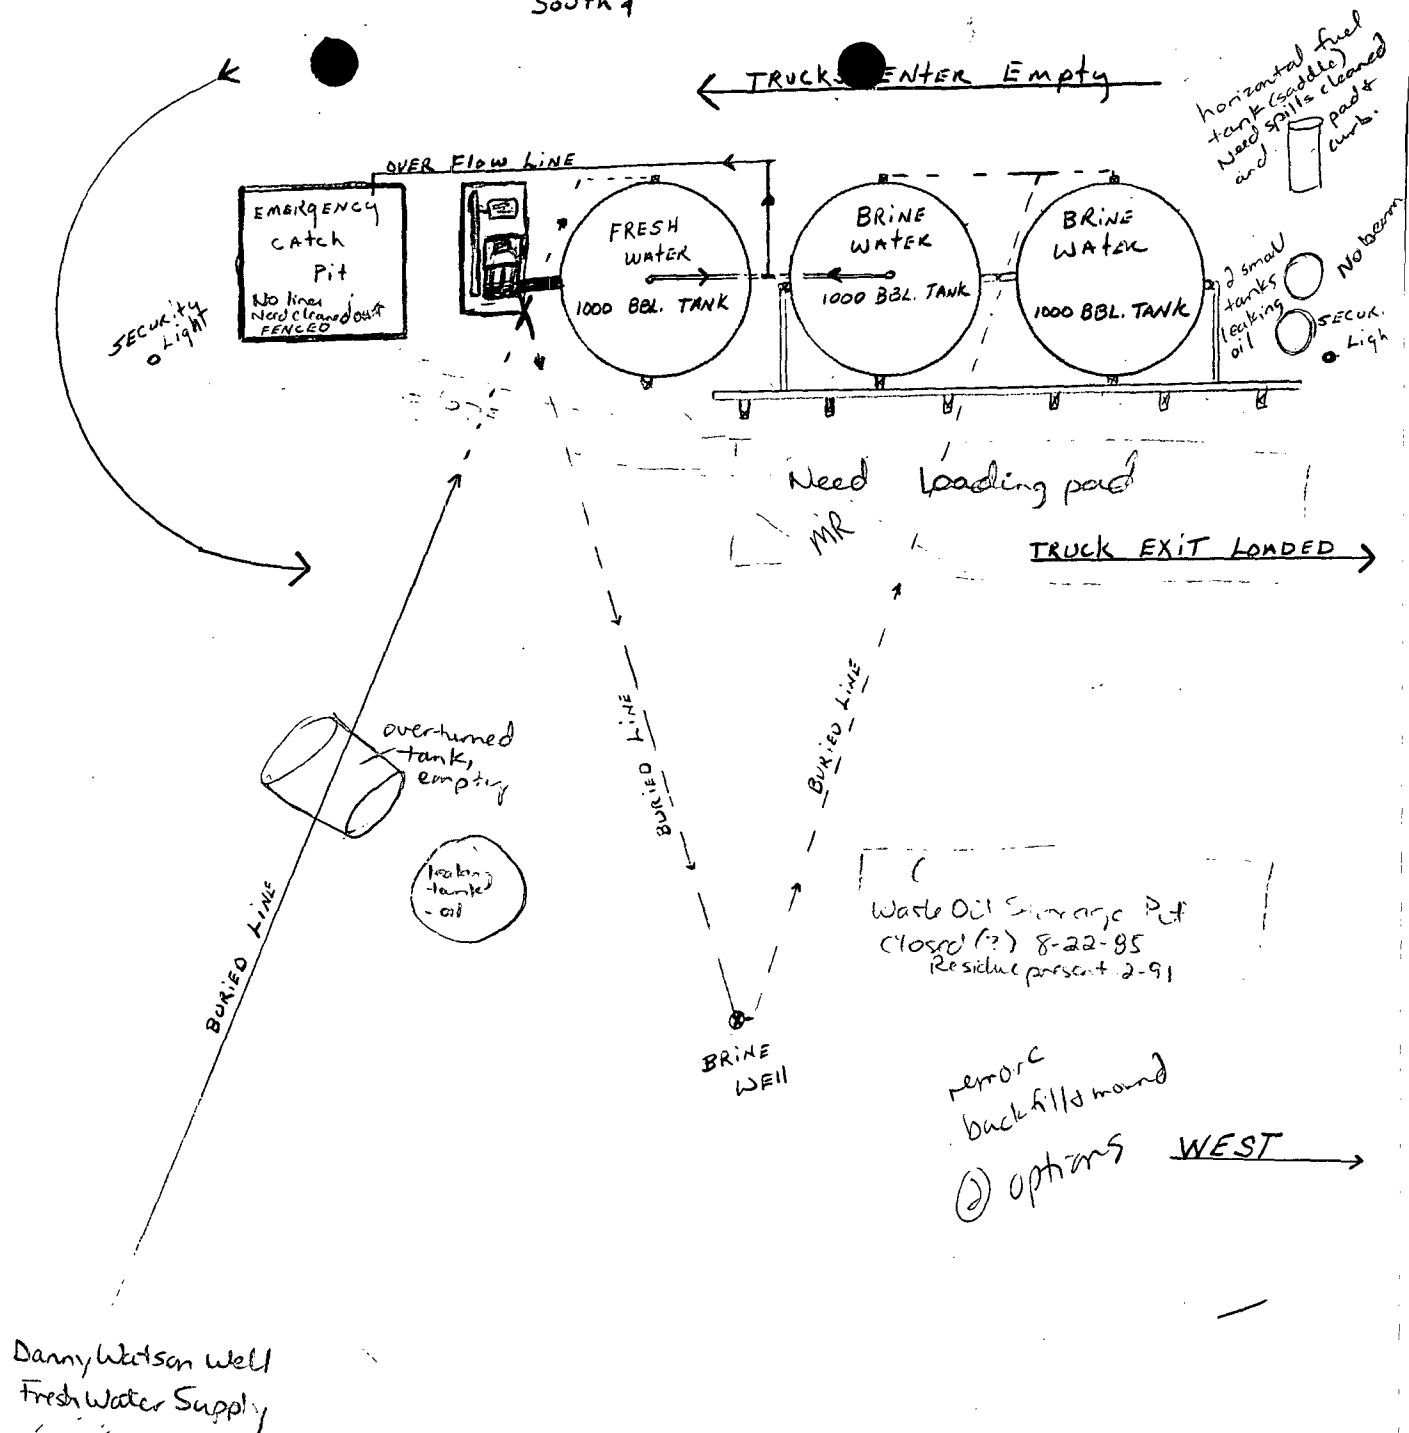 South
TRUCKS ENTER Empty
horizontal fuel
tank (saddle)
Need spills cleaned
and pad &
curb.
OVER Flow LiNE
EMERGENCY
CAtch
Pit
No liner
Need cleaned out
FENCED
FRESH
WATER
1000 BBL. TANK
BRiNE
WAtER
1000 BBL. TANK
BRiNE
WAtER
1000 BBL. TANK
2 small
tanks
leaking
oil
No berm
SECURitY
Light
SECUR.
Ligh
Need Loading pad
MR
TRUCK EXiT LOADED
overturned
tank,
empty
BURiED LiNE
BURiED LiNE
leaking
tank
- oil
BURiED LiNE
Waste Oil Storage Pit
Closed (?) 8-22-85
Residue present 2-91
BRiNE
WEll
remove
backfill & mound
② options
WEST
Danny Watson Well
Fresh Water Supply